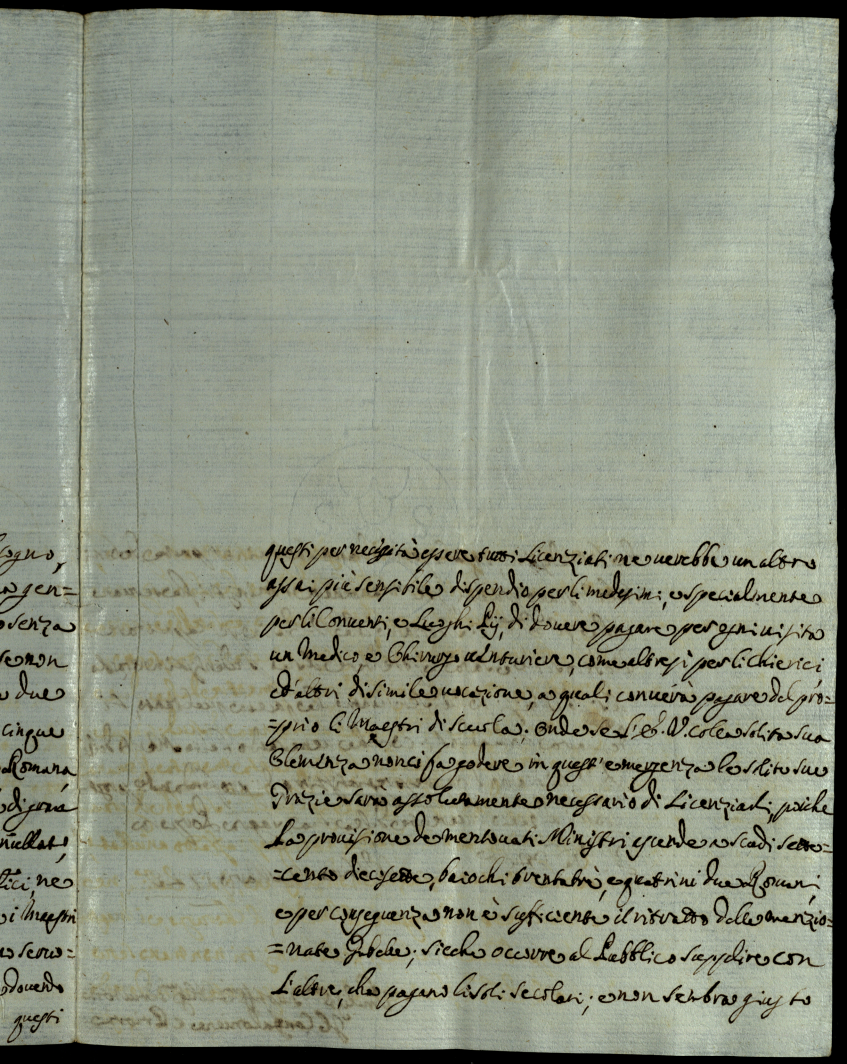 logno,
gen=
senza
se non
due
cinque
Romana
di gova
nullat,
ne
i Maestri
serv=
dovendo
questi
questi per necessità essere tutti Licenziati ne verebbe un altro
assai più sensibile dispendio per li medesimi, e specialmente
per li Conventi, e Luoghi Pij, di dovere pagare per ogni visita
un Medico, e Chirurgo venturiere, come altresì per li Chierici
ed altri di simile vocazione, a quali converà pagare del pro=
=prio li Maestri di scuola; onde se L'E. V. cole solite sua
Clemenza non ci fa godere in quest'emergenza le solite sue
Grazie sarà assolutamente necessario di Licenziarli, poiche
La provisione de mentovati Ministri ascende a scudi sette=
=cento dicisette, baiochi trentatrè, e quatrini due Romani,
e per conseguenza non è sufficiente il ritratto delle menzio=
=nate Gabelle; sicche occorre al Pubblico supplire con
L'altre, che pagano li soli secolari; e non sembra giusto